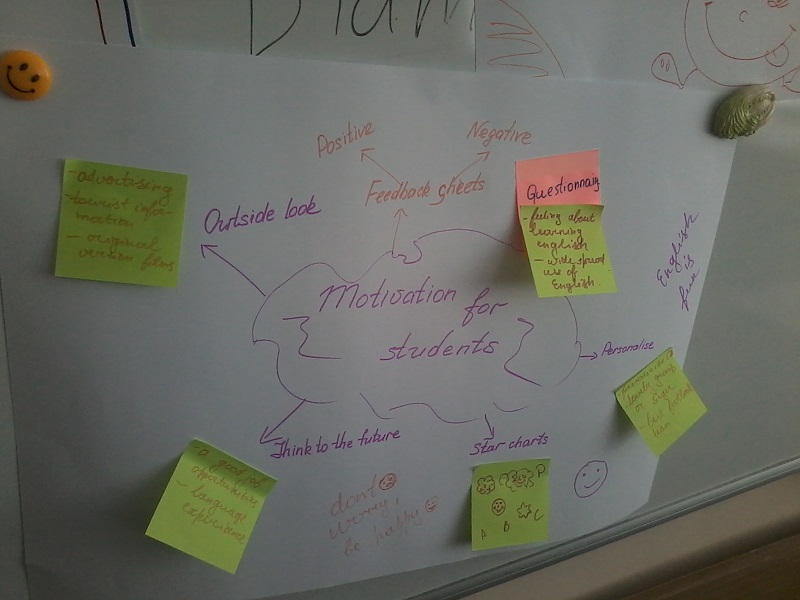 Positive
Negative
Feedback sheets
Questionnair
- feeling about
learning
english
- wide spread
use of
English.
- advertising
- tourist infor-
mation
- original
version films
Outside look
English
is
fun
Motivation for
students
Personalise
- best football
team
Think to the future
- language
experience
Star charts
P
A B C
dont
worry,
be happy